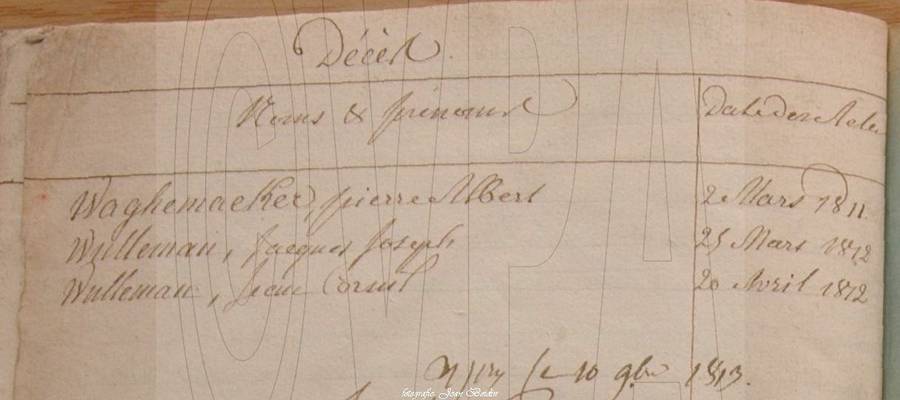 Décès.
Noms & prénoms Date des Actes
Waghemacker, pierre Albert 2 Mars 1811
Wulleman, Jacques Joseph 25 Mars 1812
Wulleman, Jean Cornil 20 Avril 1812
le 10 9bre 1813.
fotografie: Joan Bottin